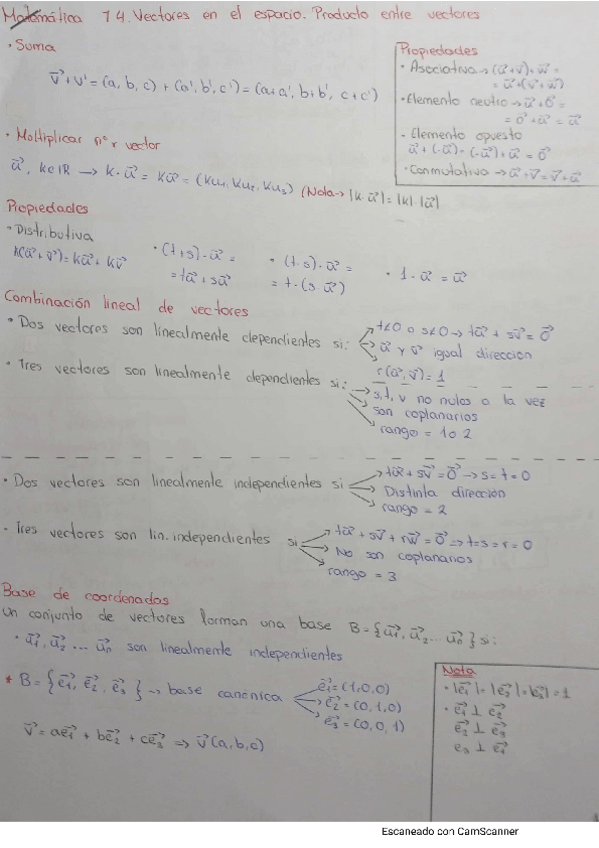 Matemática T4. Vectores en el espacio. Producto entre vectores
• Suma
v⃗ + v' = (a, b, c) + (a', b', c') = (a+a', b+b', c+c')
Propiedades
• Asociativa → (u⃗+v⃗)+w⃗ =
= u⃗+(v⃗+w⃗)
• Elemento neutro → u⃗+0⃗ =
= 0⃗+u⃗ = u⃗
- Elemento opuesto
u⃗ + (-u⃗) = (-u⃗)+u⃗ = 0⃗
• Conmutativa → u⃗+v⃗ = v⃗+u⃗
• Multiplicar nº x vector
u⃗, k∈IR → k·u⃗ = ku⃗ = (ku₁, ku₂, ku₃) (Nota → |k·u⃗| = |k|·|u⃗|
Propiedades
• Distributiva
k(u⃗+v⃗) = ku⃗ + kv⃗
• (t+s)·u⃗ =
= tu⃗ + su⃗
• (t·s)·u⃗ =
= t·(s·u⃗)
• 1·u⃗ = u⃗
Combinación lineal de vectores
• Dos vectores son linealmente dependientes si:
t≠0 o s≠0 → tu⃗ + sv⃗ = 0⃗
u⃗ y v⃗ igual dirección
r(u⃗, v⃗) = 1
• Tres vectores son linealmente dependientes si:
s, t, v no nulos a la vez
son coplanarios
rango = 1 o 2
• Dos vectores son linealmente independientes si
tu⃗ + sv⃗ = 0⃗ → s = t = 0
Distinta dirección
rango = 2
• Tres vectores son lin. independientes si
tu⃗ + sv⃗ + rw⃗ = 0⃗ → t = s = r = 0
No son coplanarios
rango = 3
Base de coordenados
Un conjunto de vectores forman una base B = {u⃗₁, u⃗₂ ... u⃗ₙ} si:
• u⃗₁, u⃗₂ ... u⃗ₙ son linealmente independientes
* B = {e⃗₁, e⃗₂, e⃗₃} → base canónica
e⃗₁ = (1,0,0)
e⃗₂ = (0,1,0)
e⃗₃ = (0,0,1)
v⃗ = ae⃗₁ + be⃗₂ + ce⃗₃ ⇒ v⃗(a,b,c)
Nota
• e⃗₁ ⊥ e⃗₂
e⃗₂ ⊥ e⃗₃
e₃ ⊥ e⃗₁
Escaneado con CamScanner